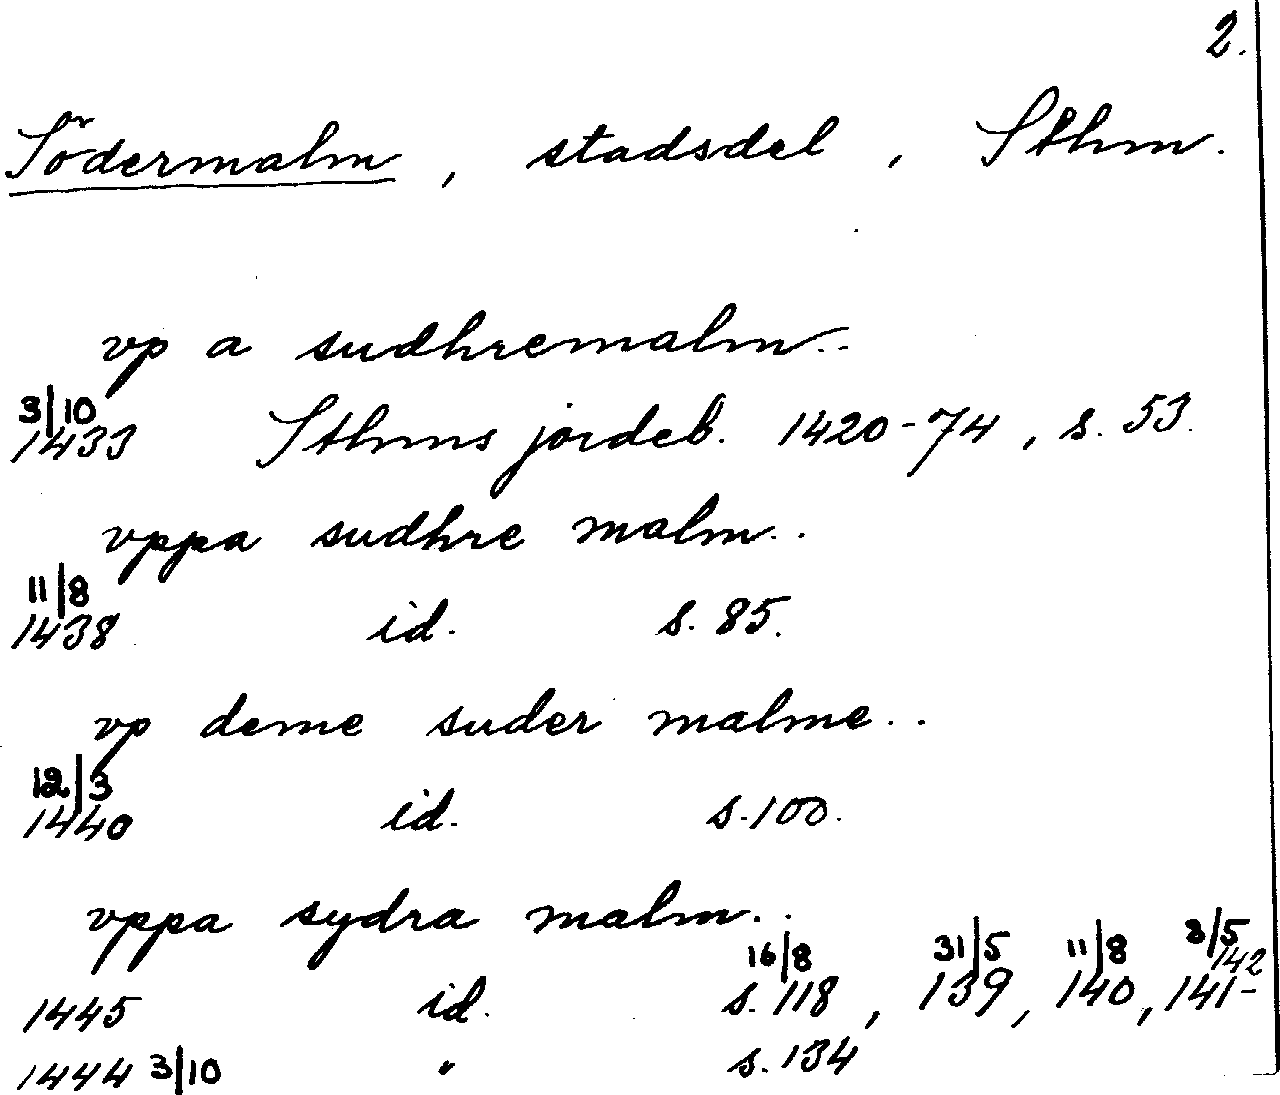 2.
Södermalm, stadsdel, Sthm.
vp a sudhremalm..
3/10
1433 Sthms jordeb. 1420-74, s. 53.
vppa sudhre malm..
11/8
1438 id. s. 85.
vp deme suder malme..
12/3
1440 id. s. 100.
vppa sydra malm..
16/8 31/5 11/8 3/5
1445 id. s. 118, 139, 140, 141-142
1444 3/10 " s. 134